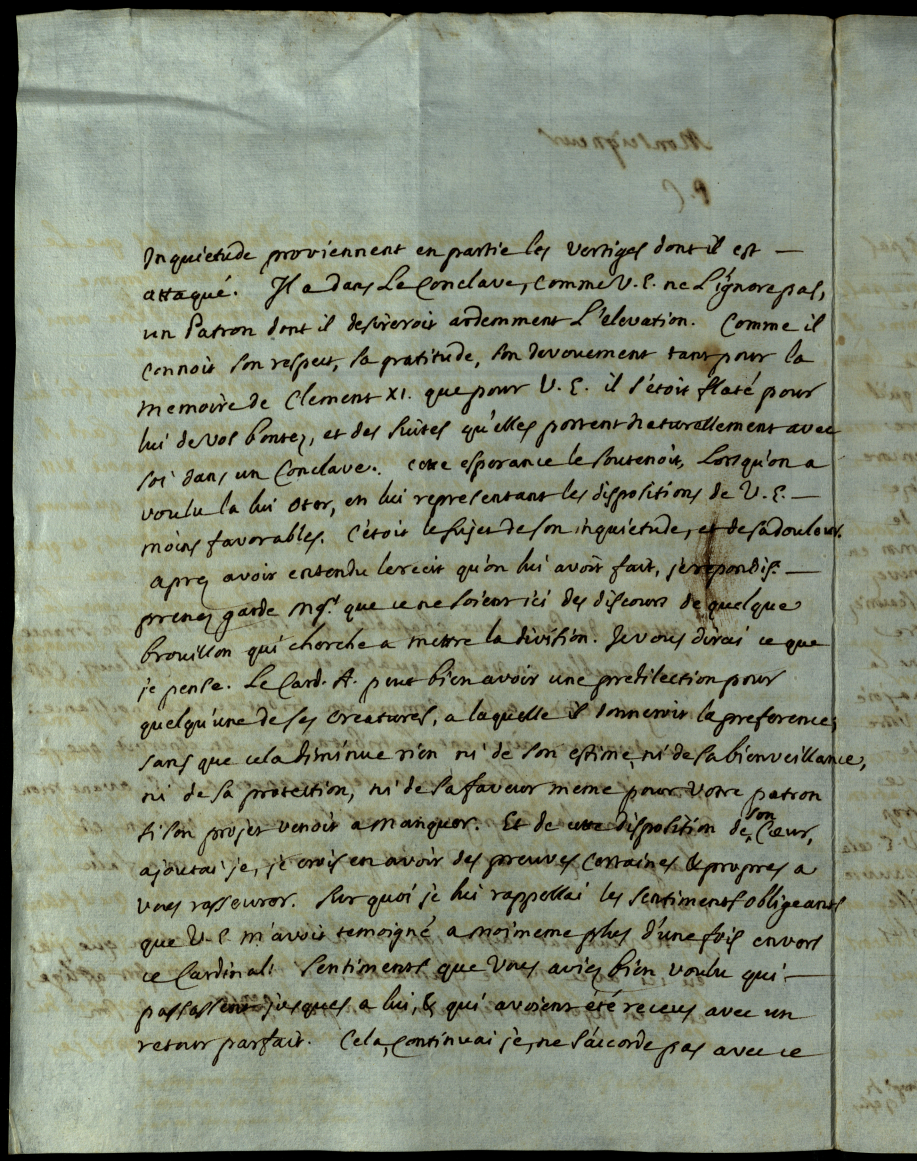 Inquietude proviennent en partie les vertiges dont il est —
attaqué. Il a dans Le Conclave, comme V. E. ne L'ignore pas,
un Patron dont il desireroit ardemment L'elevation. Comme il
connoit son respect, sa gratitude, son devouement tant pour la
memoire de Clement XI. que pour V. E. il s'étoit flaté pour
lui de vos bontez, et des suites qu'elles portent naturellement avec
soi dans un Conclave. Cette esperance le soutenoit, Lorsqu'on a
voulu la lui oter, en lui representant les dispositions de V. E. —
moins favorables. C'étoit le sujet de son inquietude, et de sa douleur.
aprez avoir entendu le recit qu'on lui avoit fait, je repondis. —
prenez garde Mgr. que ce ne soient ici des discours de quelque
brouillon qui cherche a mettre la division. Je vous dirai ce que
je pense. Le Card. A. peut bien avoir une predilection pour
quelqu'une de ses creatures, a laquelle il donneroit la preference,
sans que cela diminue rien ni de son estime, ni de sa bienveillance,
ni de sa protection, ni de sa faveur meme pour votre patron
si son projet venoit a manquer. Et de cette disposition de son Cœur,
ajoutai je, je crois en avoir des preuves certaines & propres a
vous rasseurer. Sur quoi je lui rappellai les sentiments obligeants
que V. E. m'avoit temoigné a moi meme plus d'une fois envers
ce Cardinal: Sentiments que Vous aviez bien voulu qui —
passassent jusques a lui, & qui avoient été receus avec un
retour parfait. Cela, continuai je, ne s'accorde pas avec ce
Monseigneur